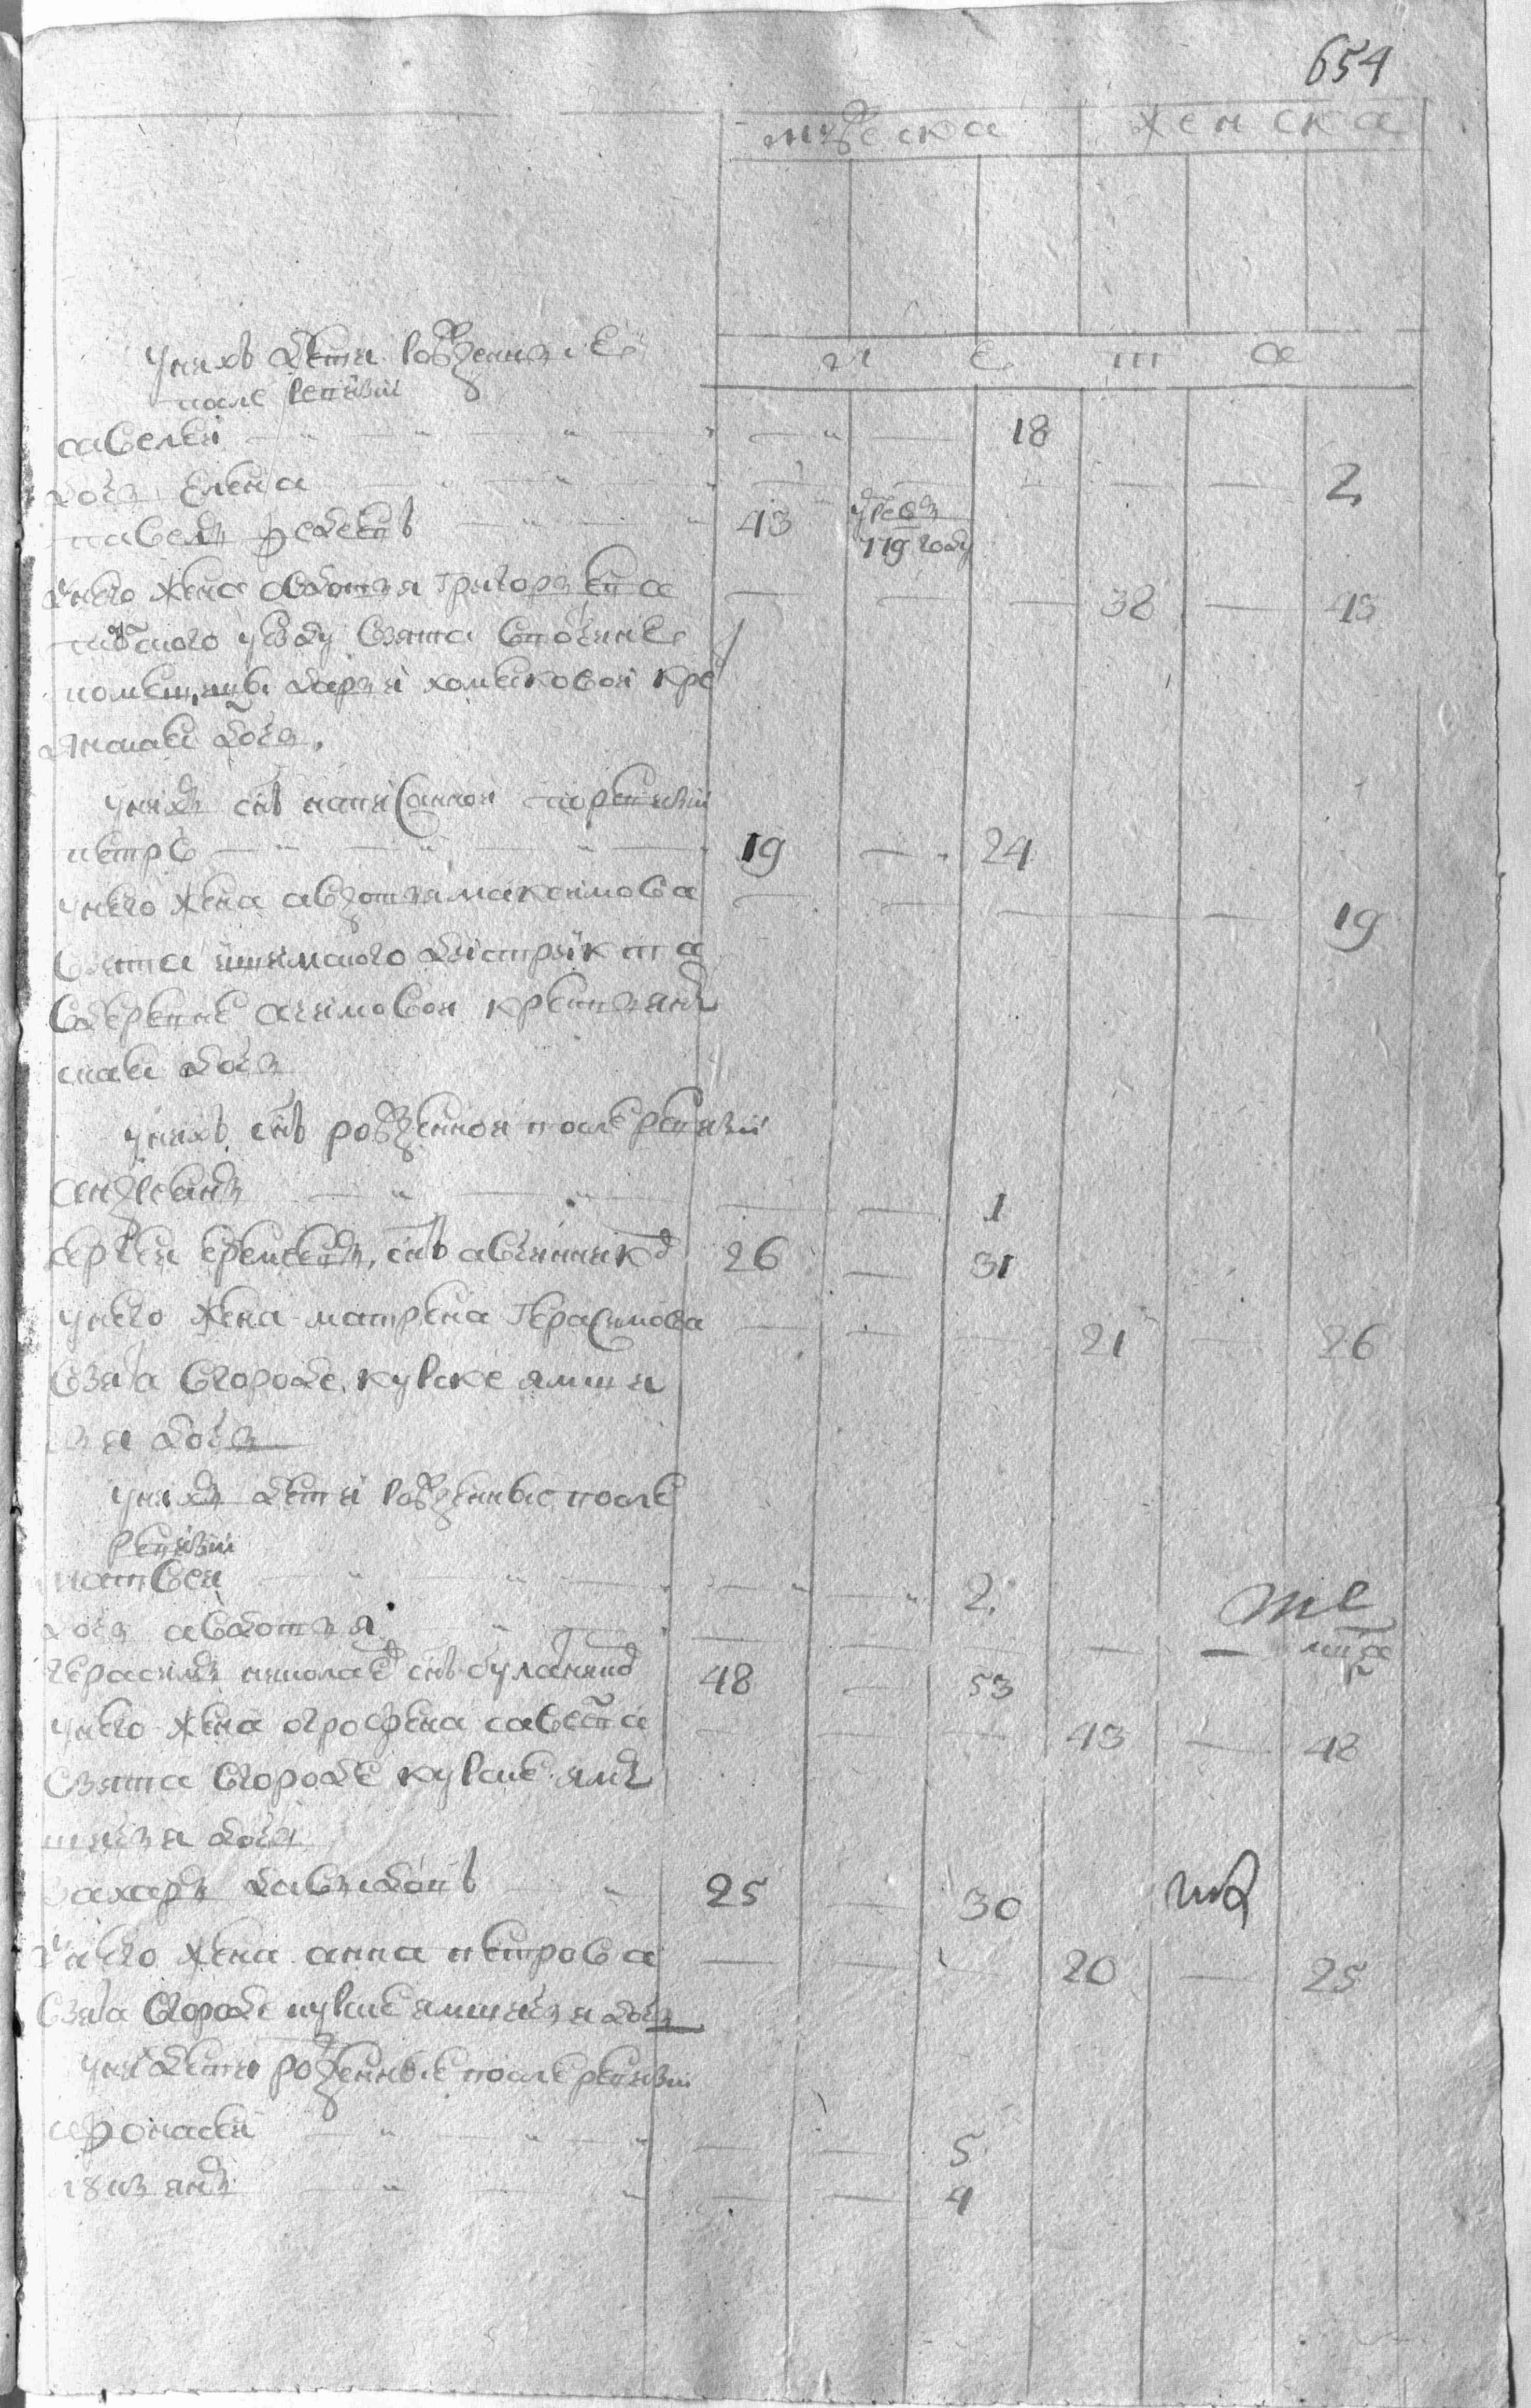 654
мужеска женска
л е т а
у них дети рожденные
после ревизии
савелей 18
дочь елена 2
павел федеев 43 умре в 779 году
у него жена авдотья григорьева 38 43
уезду взята вотчине
помещицы дарьи хомяковой кре
стьянская дочь
у них сын написанной по ревизии
петръ 19 24
у него жена авдотья максимова 19
взята ишимского дистрикта
в деревне ачимовой крестьян
ская дочь
у них сын рожденной после ревизии
андреян 1
сергей еремеев сын овчинников 26 31
у него жена матрена Герасимова 21 26
взята в городе курске ямщи
чья дочь
у них дети рожденные после
ревизии
матвей 2
дочь авдотья
герасим николаев сын буланин 48 53
у него жена огрофена савельева 43 48
взята в городе курске ям
щичья дочь
захар давыдов 25 30
у него жена анна петрова 20 25
взята в городе курске ямщичья дочь
у них дети рожденные после ревизии
афонасей 5
кузьян 4